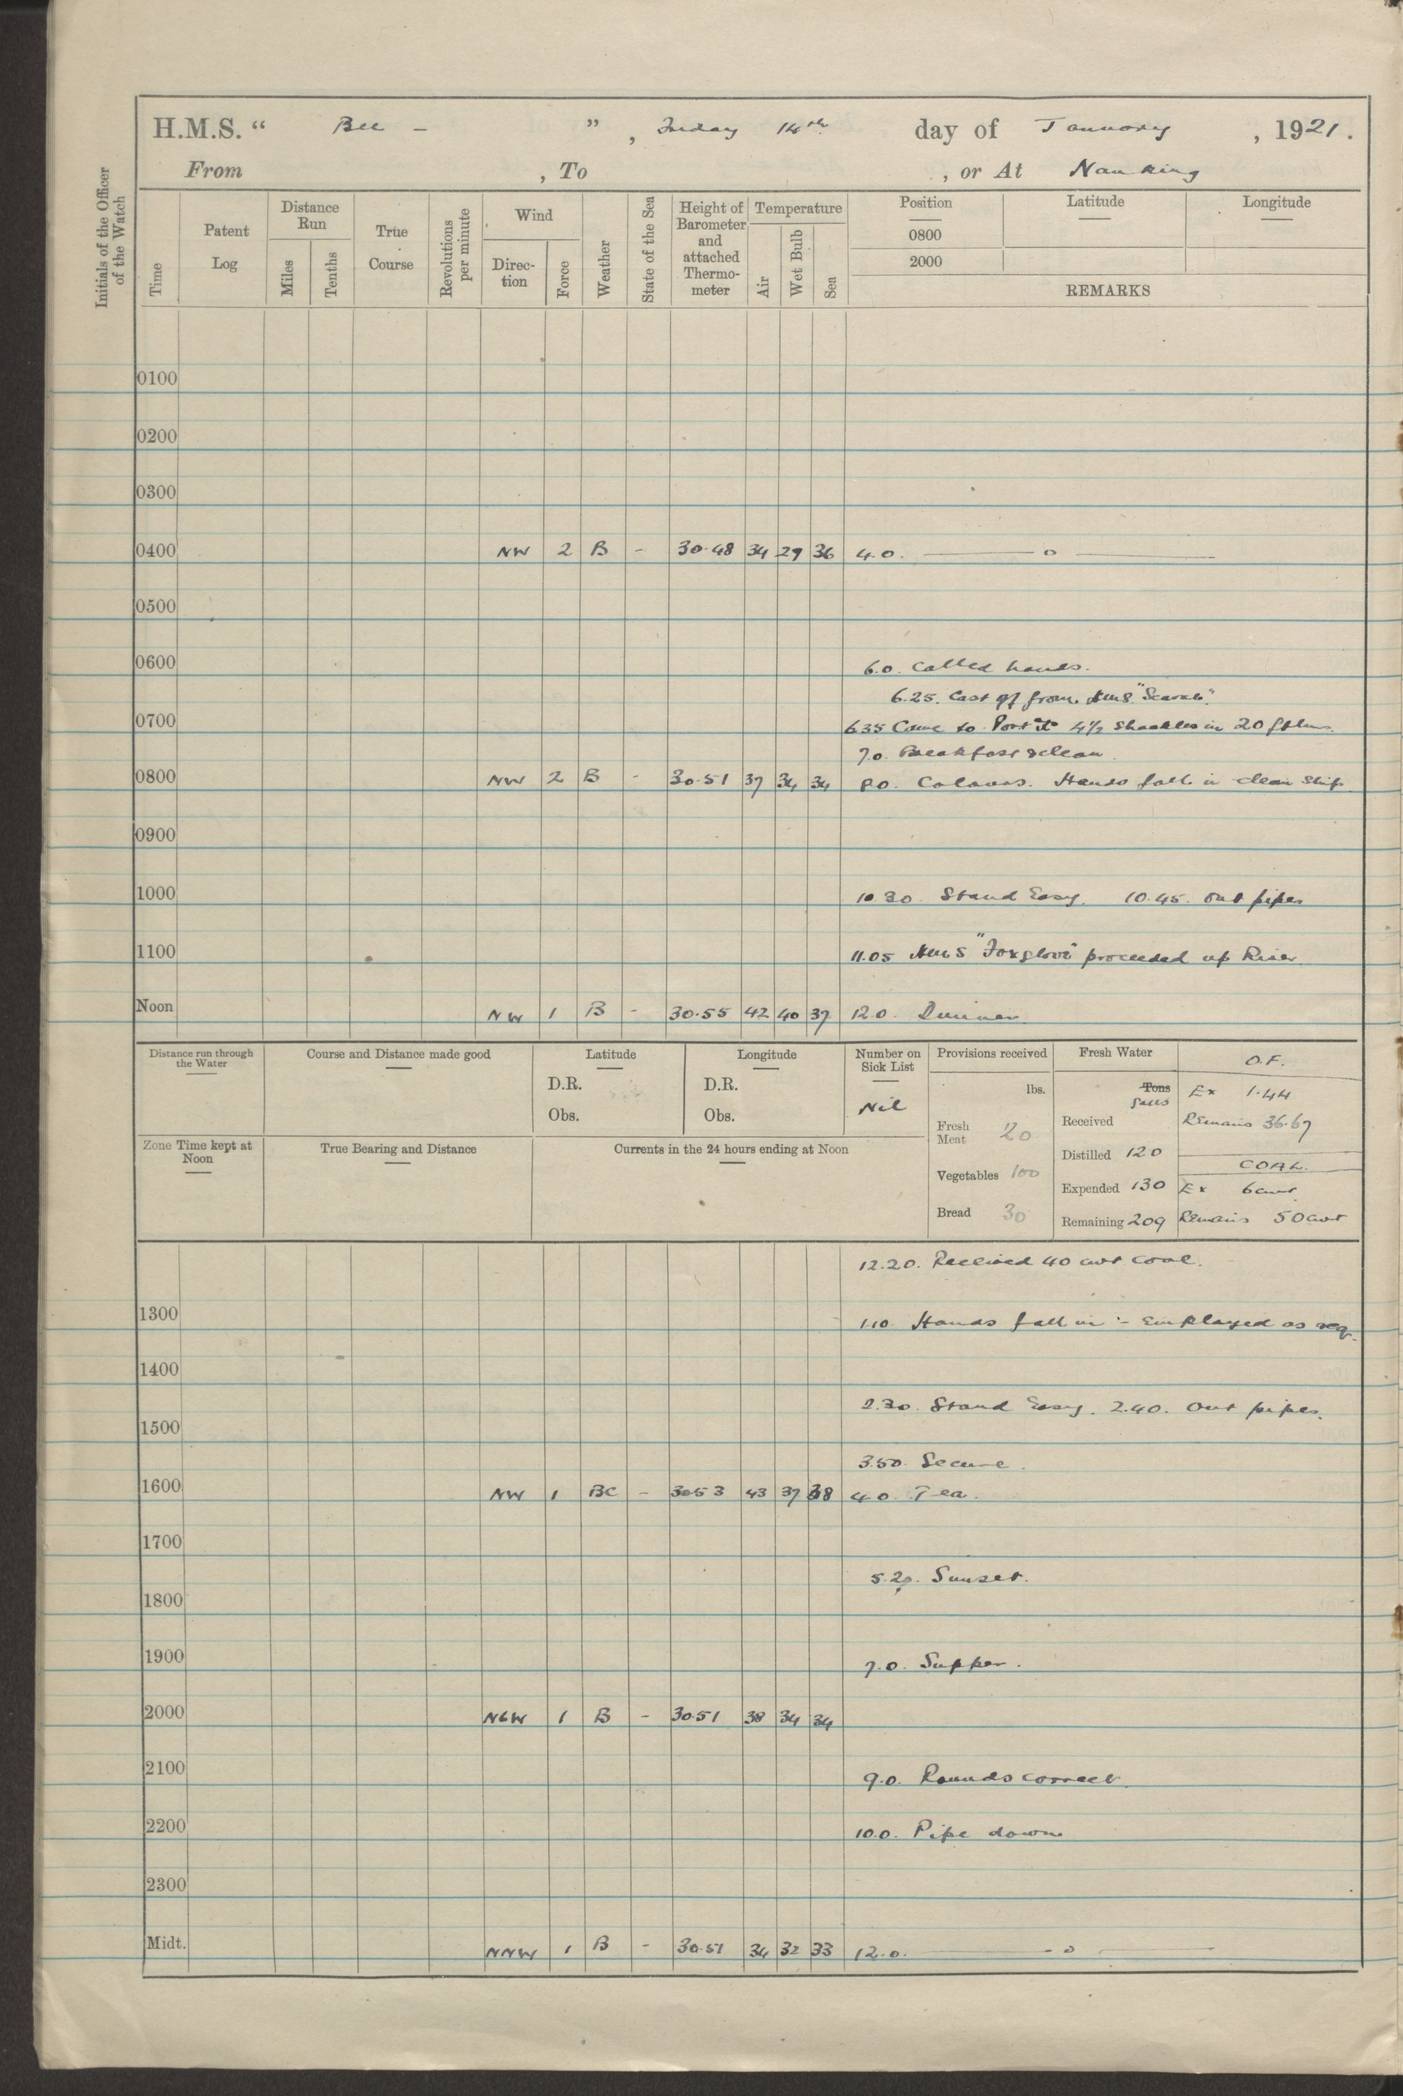 H.M.S. “ Bee – ” , Friday 14th day of January , 1921.
From , To , or At Nanking
Initials of the Officer of the Watch
Time
Patent Log
Distance Run
Miles
Tenths
True Course
Revolutions per minute
Wind
Direction
Force
Weather
State of the Sea
Height of Barometer and attached Thermometer
Temperature
Air
Wet Bulb
Sea
Position
0800
2000
Latitude
Longitude
REMARKS
0100
0200
0300
0400 NW 2 B - 30.48 34 29 36 4.0. ——— o ———
0500
0600 6.0. Called hands.
6.25. Cast off from HMS "Scarab".
0700 6.35 Came to Port 4½ Shackles in 20 fthms.
7.0. Breakfast & clean.
0800 NW 2 B - 30.51 37 34 34 8.0. Colours. Hands fall in clean ship.
0900
1000 10.30. Stand Easy. 10.45. Out pipes
1100 11.05 HMS "Foxglove" proceeded up River
Noon NW 1 B - 30.55 42 40 37 12.0. Dinner
Distance run through the Water
Course and Distance made good
Latitude
D.R.
Obs.
Longitude
D.R.
Obs.
Number on Sick List
Nil
Provisions received
lbs.
Fresh Meat 20
Vegetables 100
Bread 30
Fresh Water
Tons
galls
Received
Distilled 120
Expended 130
Remaining 209
O.F.
Ex 1.44
Remains 36.67
COAL.
Ex 6 cwt
Remains 50 cwt
Zone Time kept at Noon
True Bearing and Distance
Currents in the 24 hours ending at Noon
12.20. Received 40 cwt coal.
1300 1.10. Hands fall in :- Employed as req.
1400
2.30. Stand Easy. 2.40. Out pipes.
1500
3.50. Secure.
1600 NW 1 BC - 30.53 43 37 38 4.0. Tea.
1700
5.20. Sunset.
1800
1900 7.0. Supper.
2000 NbW 1 B - 30.51 38 34 34
2100 9.0. Rounds correct.
2200 10.0. Pipe down
2300
Midt. NNW 1 B - 30.51 34 32 33 12.0. ——— o ———